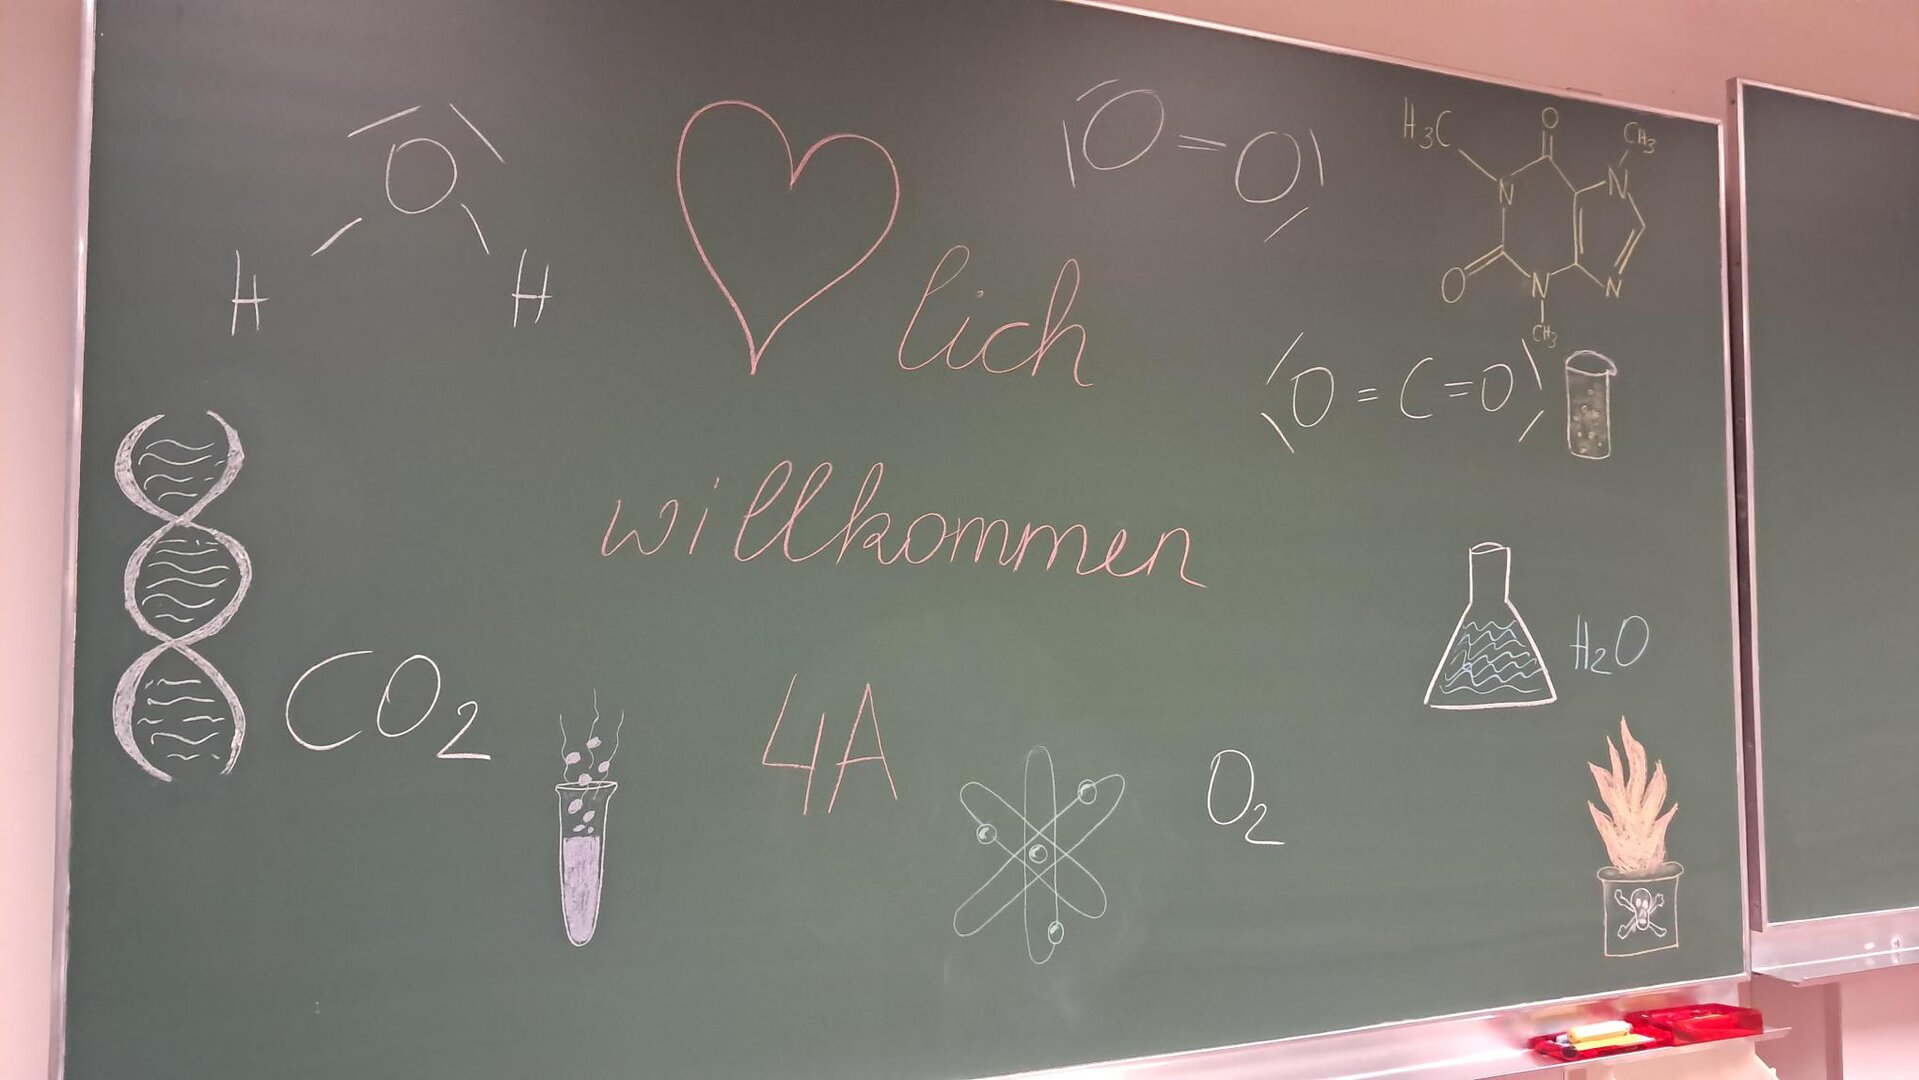 O
H H
lich
O=O
H₃C O CH₃
N N
O N N
CH₃
O=C=O
willkommen
H₂O
CO₂
4A
O₂